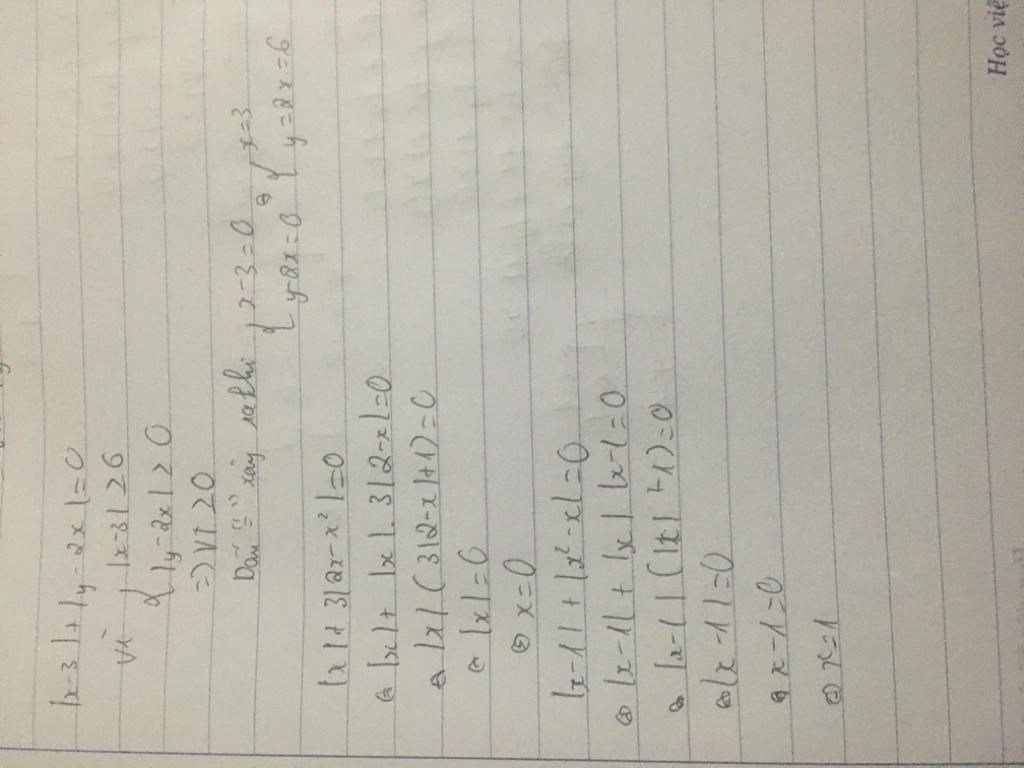 |x-3|+|y-2x|=0
Vì { |x-3|≥0
|y-2x|≥0
=) VT≥0
Dấu "=" xảy ra khi { x-3=0 ⇔ { x=3
y-2x=0 { y=2x=6
|x|+3|2x-x²|=0
⇔ |x|+|x|.3|2-x|=0
⇔ |x|(3|2-x|+1)=0
⇔ |x|=0
⇔ x=0
|x-1|+|x²-x|=0
⇔ |x-1|+|x||x-1|=0
⇔ |x-1|(|x|+1)=0
⇔ |x-1|=0
⇔ x-1=0
⇔ x=1
Học việ